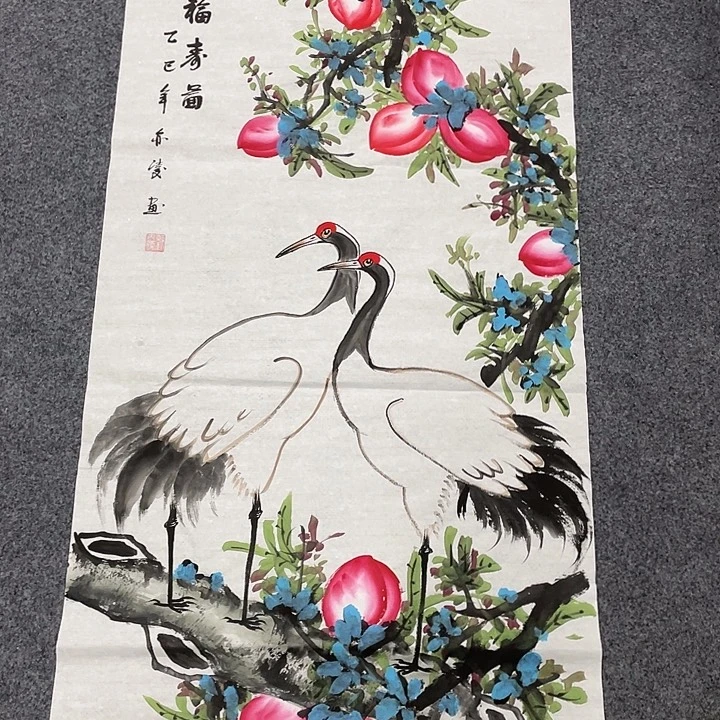 福寿图
乙巳年亦俊画